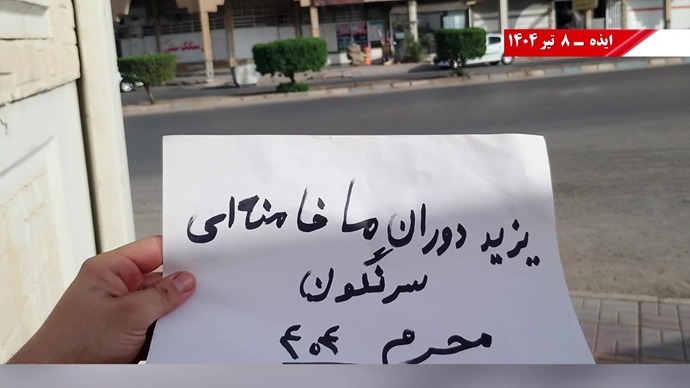 ایذه – ۸ تیر ۱۴۰۴
یزید دوران ما خامنه‌ای
سرنگون
محرم ۴۰۴